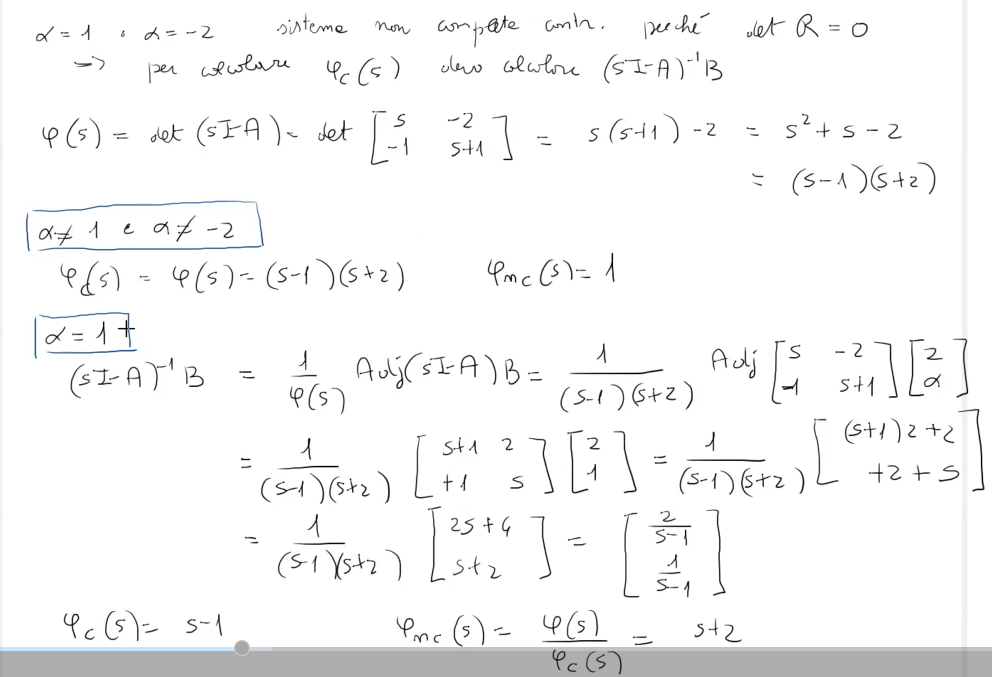 α = 1 e α = -2 sistema non complete contr. perché det R = 0
→ per calcolare φc(s) devo calcolare (sI-A)⁻¹B
φ(s) = det (sI-A) = det [s -2; -1 s+1] = s(s+1) -2 = s² + s - 2
= (s-1)(s+2)
α ≠ 1 e α ≠ -2
φc(s) = φ(s) = (s-1)(s+2) φnc(s) = 1
α = 1 +
(sI-A)⁻¹ B = 1/φ(s) Adj(sI-A) B = 1/((s-1)(s+2)) Adj [s -2; -1 s+1] [2; α]
= 1/((s-1)(s+2)) [s+1 2; +1 s] [2; 1] = 1/((s-1)(s+2)) [(s+1)2+2; +2+s]
= 1/((s-1)(s+2)) [2s+4; s+2] = [2/(s-1); 1/(s-1)]
φc(s) = s-1 φnc(s) = φ(s)/φc(s) = s+2